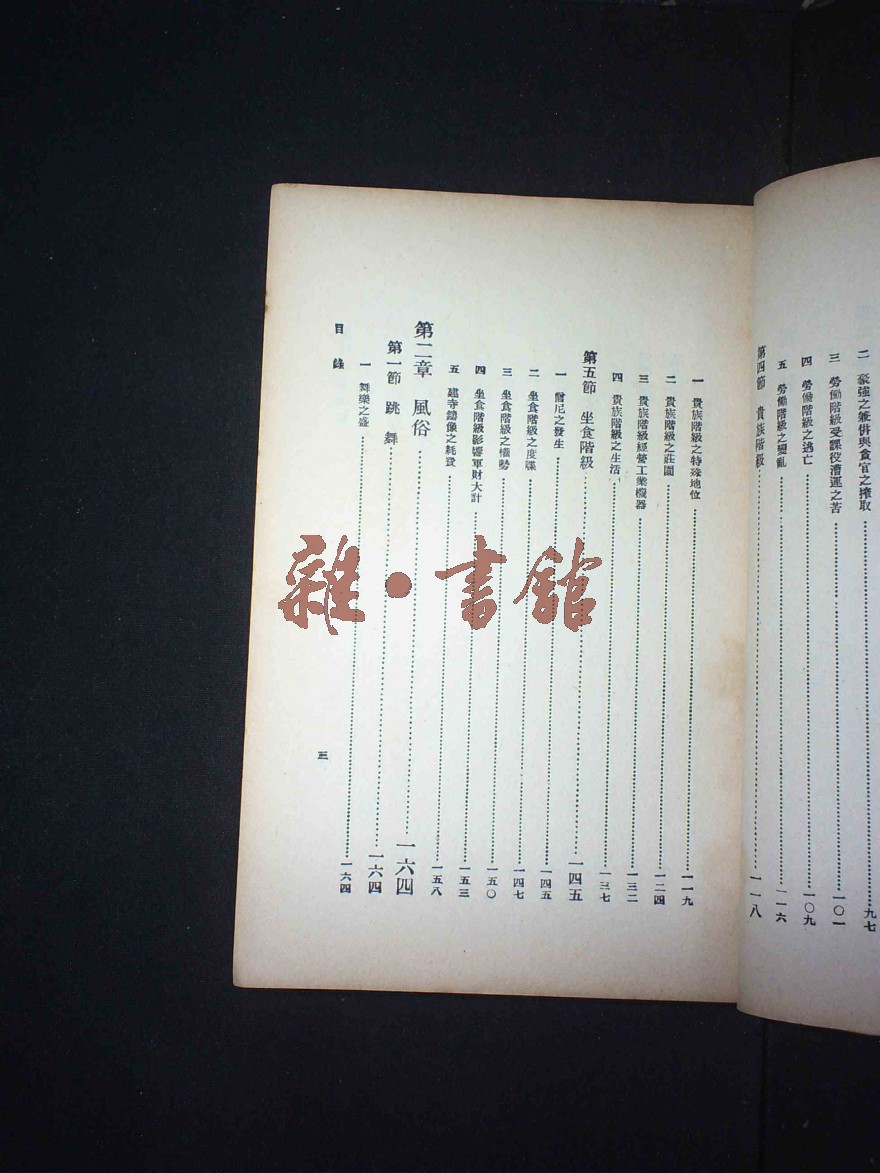 二　豪強之兼併與貪官之搾取………九七
三　勞働階級受課役漕運之苦………一〇一
四　勞働階級之逃亡………一〇九
五　勞働階級之變亂………一一六
第四節　貴族階級………一一八
一　貴族階級之特殊地位………一一九
二　貴族階級之莊園………一二四
三　貴族階級經營工業機器………一三二
四　貴族階級之生活………一三七
第五節　坐食階級………一四五
一　僧尼之發生………一四五
二　坐食階級之度牒………一四七
三　坐食階級之權勢………一五〇
四　坐食階級影響軍財大計………一五三
五　建寺鑄像之耗費………一五八
第二章　風俗………一六四
第一節　跳舞………一六四
一　舞樂之盛………一六四
目錄
三
雜・書館